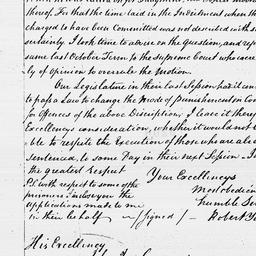 thereof. For that the time laid in the Indictment when the
charged to have been Committed was not described with s
certainty. I took time to advise on the Question, and rep
same last October Term to the Supreme Court who were
ly of Opinion to overrule the Motion.
Our Legislature in their last Session had it con
to pass a Law to change the Mode of punishment on Con
on Offences of the above Description, I leave it theref
Excellencys consideration, whether it would not b
able to respite the Execution of those who are alrea
Sentenced, to some Day in their next Session. I
the greatest respect
Your Excellencys
P.S. with respect to some of the
Most obedien
prisoners I inclose you the
humble Ser
Applications made to me
in their behalf
(Signed)
Robert Y
His Excellency